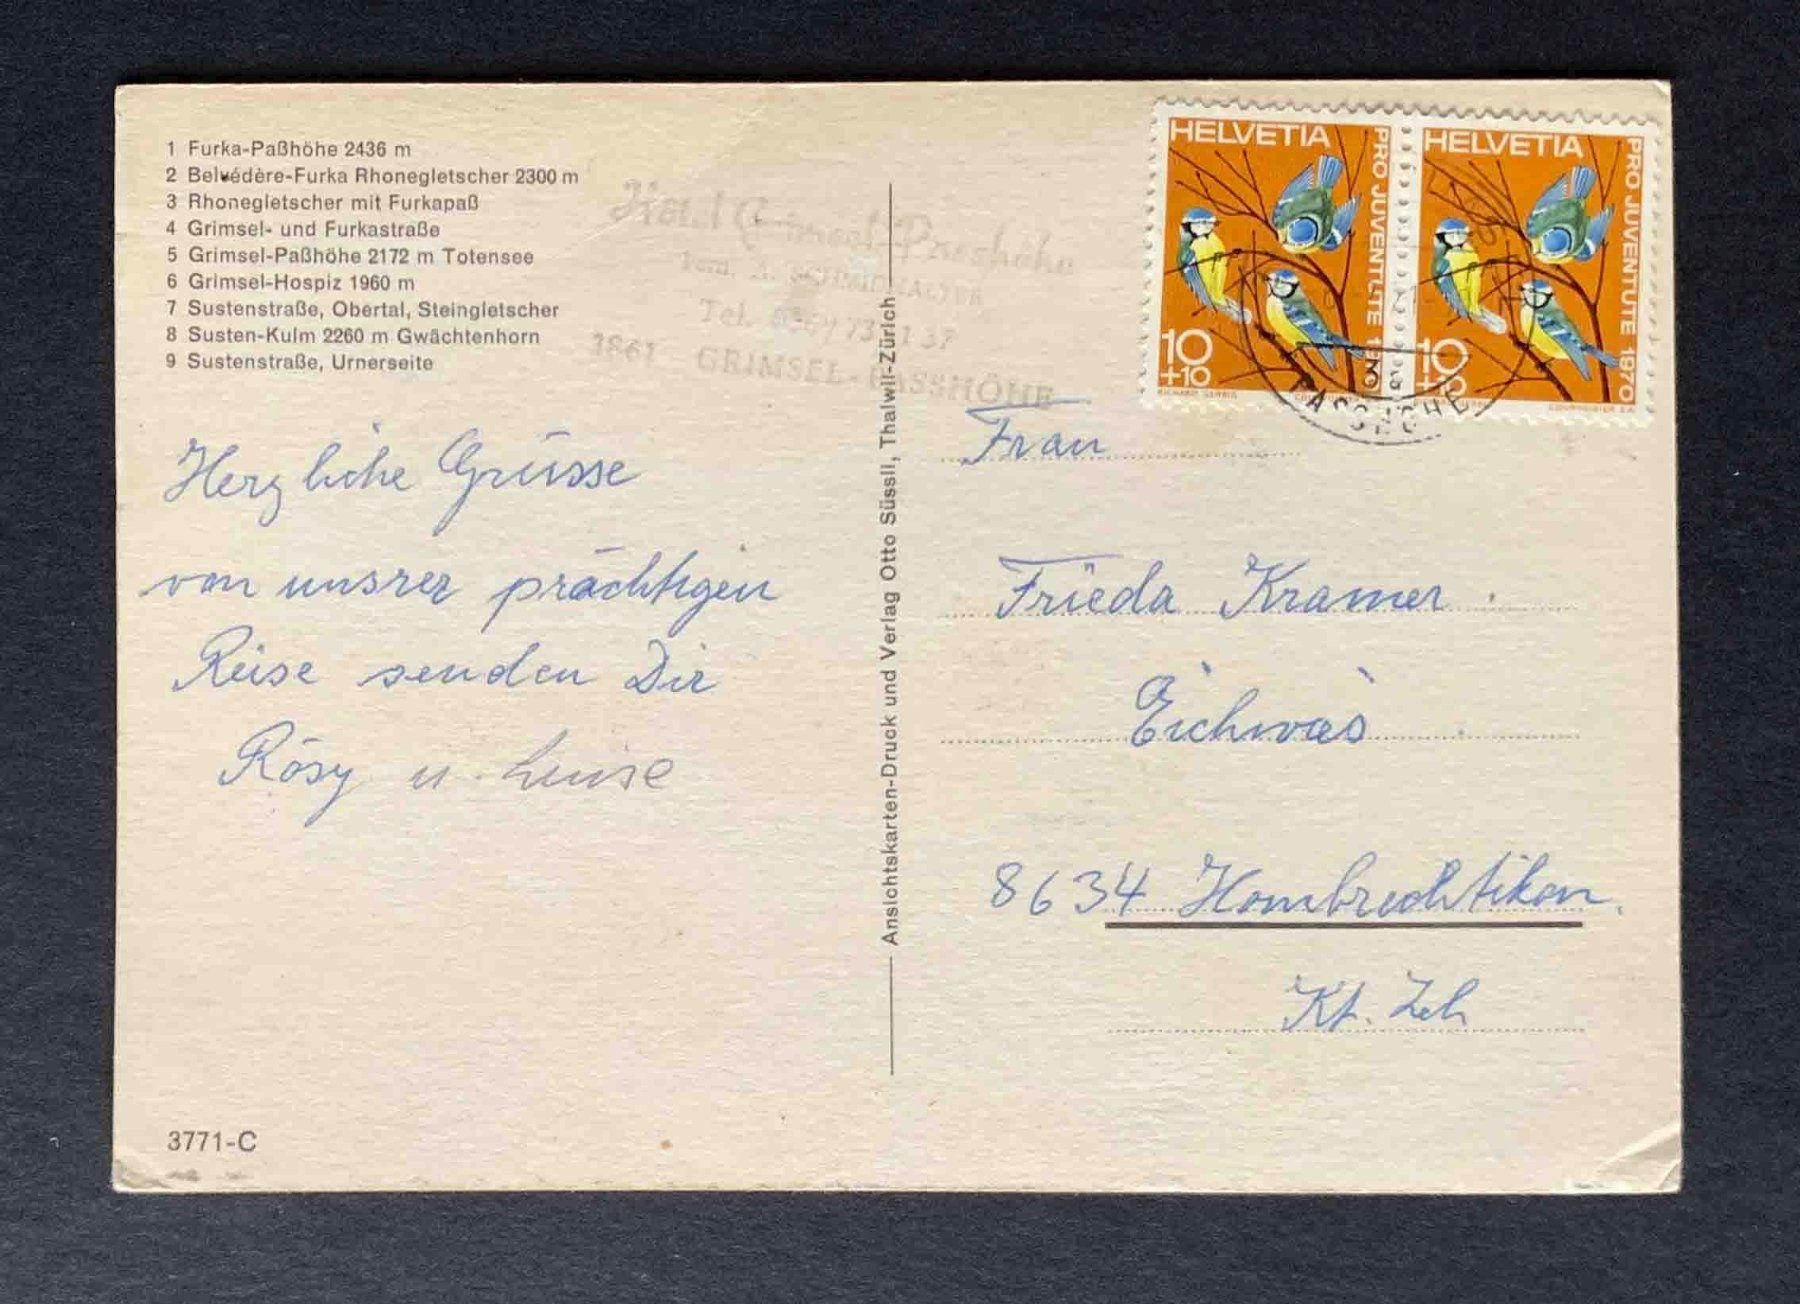 1 Furka-Paßhöhe 2436 m
2 Belvédère-Furka Rhonegletscher 2300 m
3 Rhonegletscher mit Furkapaß
4 Grimsel- und Furkastraße
5 Grimsel-Paßhöhe 2172 m Totensee
6 Grimsel-Hospiz 1960 m
7 Sustenstraße, Obertal, Steingletscher
8 Susten-Kulm 2260 m Gwächtenhorn
9 Sustenstraße, Urnerseite
Hotel Grimsel-Passhöhe
Tel.
3861 GRIMSEL-PASSHÖHE
Herzliche Grüsse
von unsrer prächtigen
Reise senden Dir
Rösy u. Luise
3771-C
Ansichtskarten-Druck und Verlag Otto Süssli, Thalwil-Zürich
HELVETIA
PRO JUVENTUTE 1970
10
+10
HELVETIA
PRO JUVENTUTE 1970
10
+10
PASSHÖHE
Frau
Frieda Kramer.
8634 Hombrechtikon.
Kt. Zch